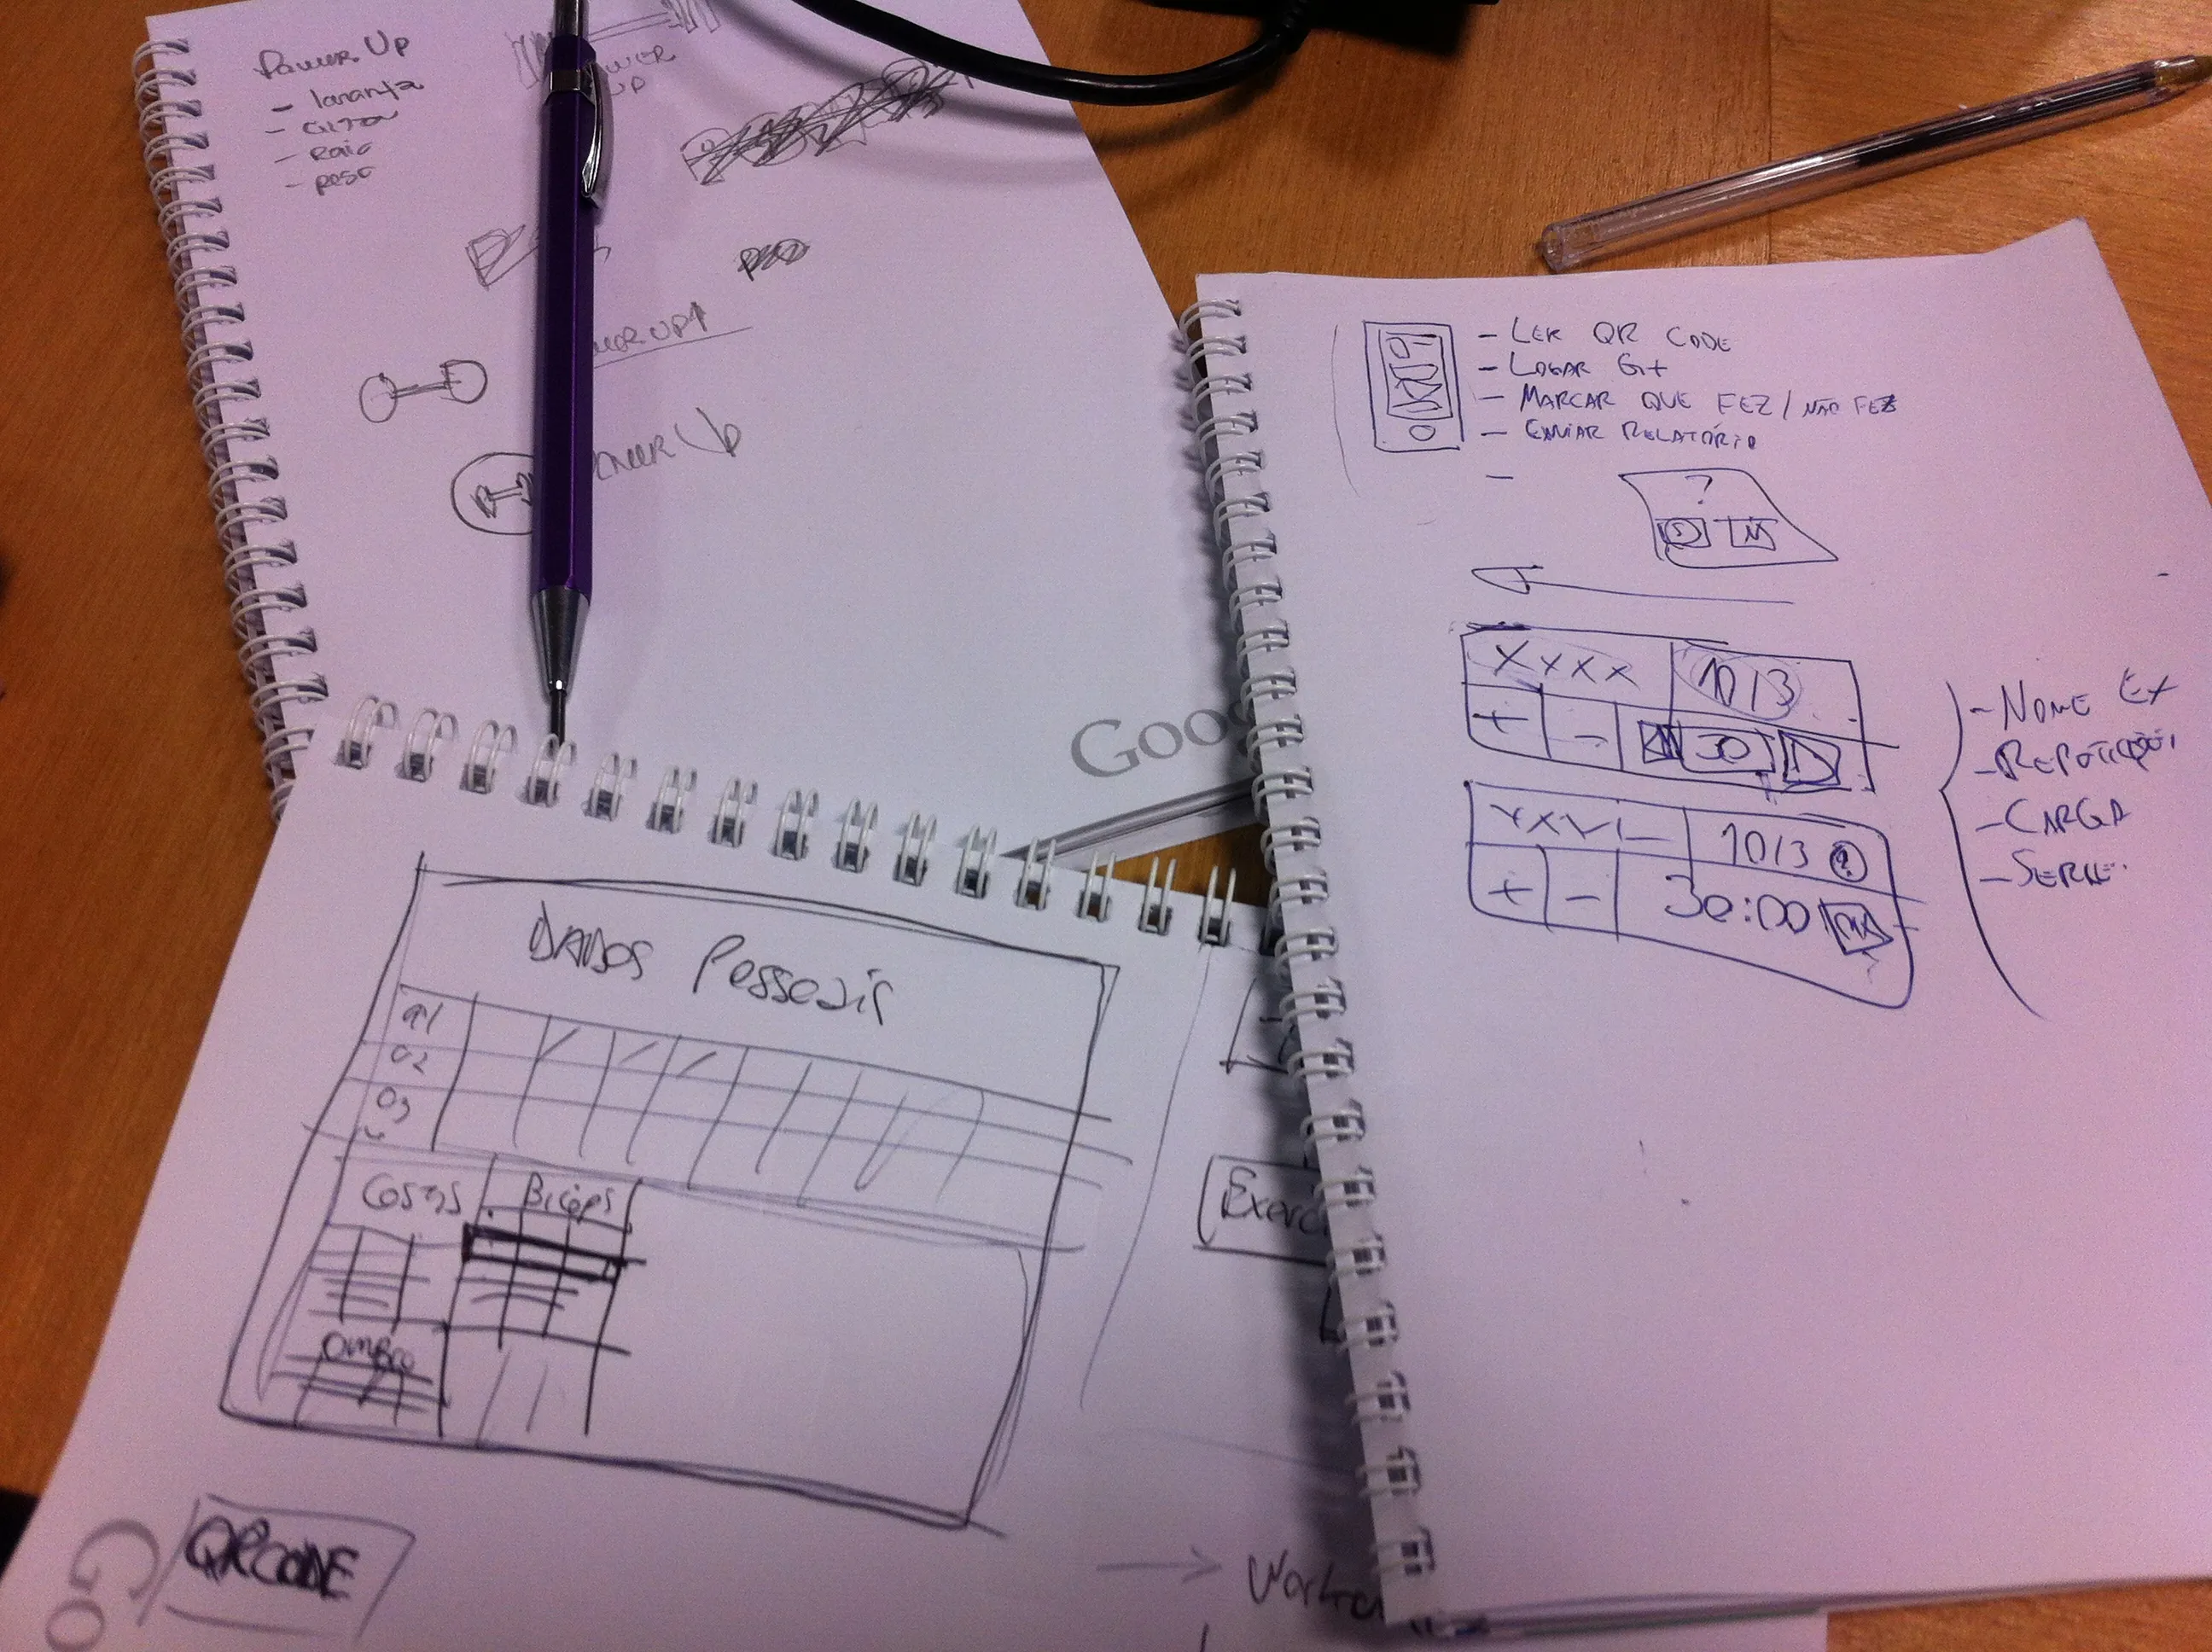 Power Up
- laranja
- raio
- peso
POWER
UP
POWER UP
Power Up
Goog
- LER QR CODE
- LOGAR G+
- MARCAR QUE FEZ / NÃO FEZ
- ENVIAR RELATÓRIO
-
?
XXXX 10/3
+ - 30
10/3
+ - 30:00
- NOME EX
- CARGA
- SERIE
DADOS Pessoais
01
02
03
Costas Biceps
Ombro
QRCODE
Go
Exerc
→ Workou